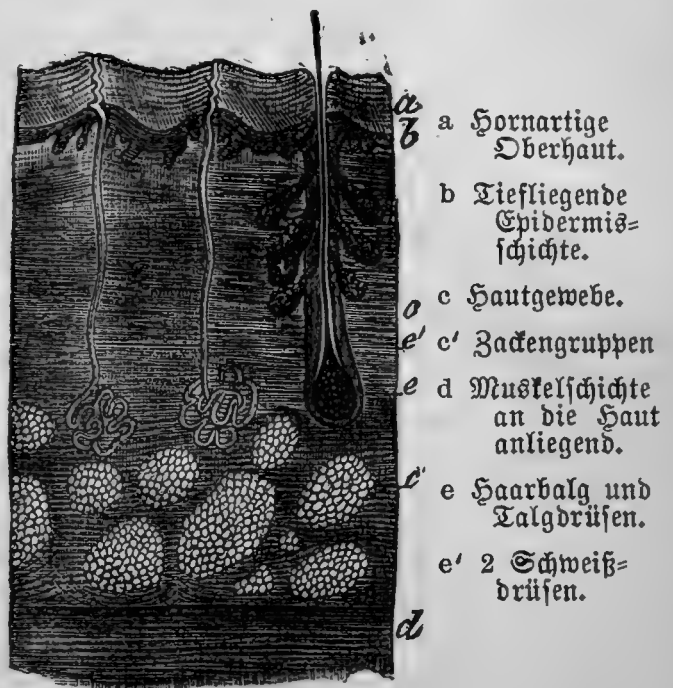 a
b
c
e'
e
c'
d
a Hornartige
Oberhaut.
b Tiefliegende
Epidermis=
schichte.
c Hautgewebe.
c' Zackengruppen
d Muskelschichte
an die Haut
anliegend.
e Haarbalg und
Talgdrüsen.
e' 2 Schweiß=
drüsen.